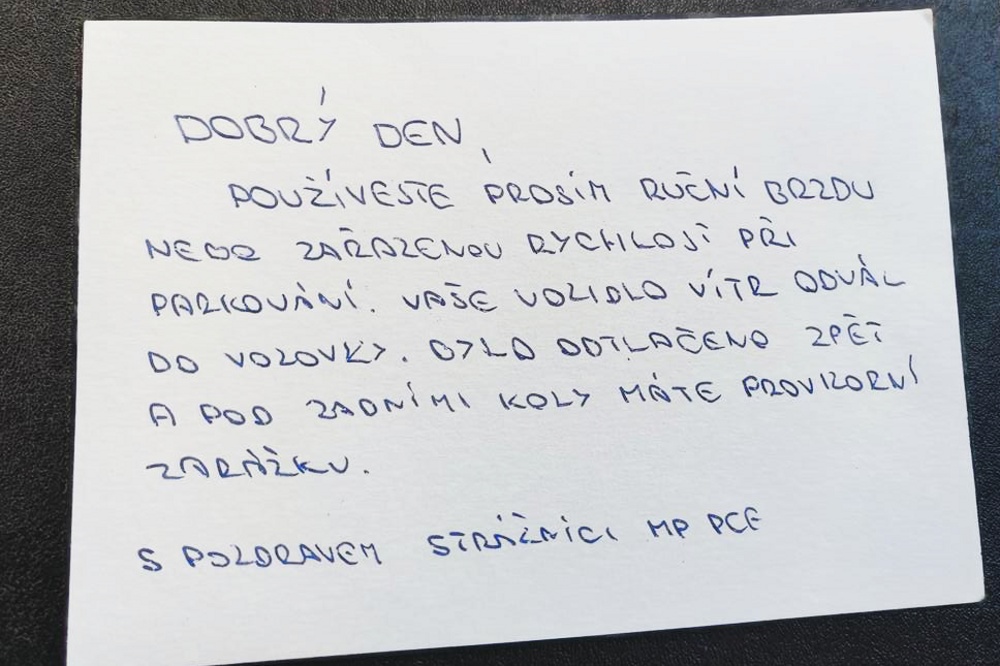 DOBRÝ DEN,
POUŽÍVEJTE PROSÍM RUČNÍ BRZDU
NEBO ZAŘAZENOU RYCHLOST PŘI
PARKOVÁNÍ. VAŠE VOZIDLO VÍTR ODVÁL
DO VOZOVKY. BYLO ODTLAČENO ZPĚT
A POD ZADNÍMI KOLY MÁTE PROVIZORNÍ
ZARÁŽKU.
S POZDRAVEM STRÁŽNÍCI MP PCE